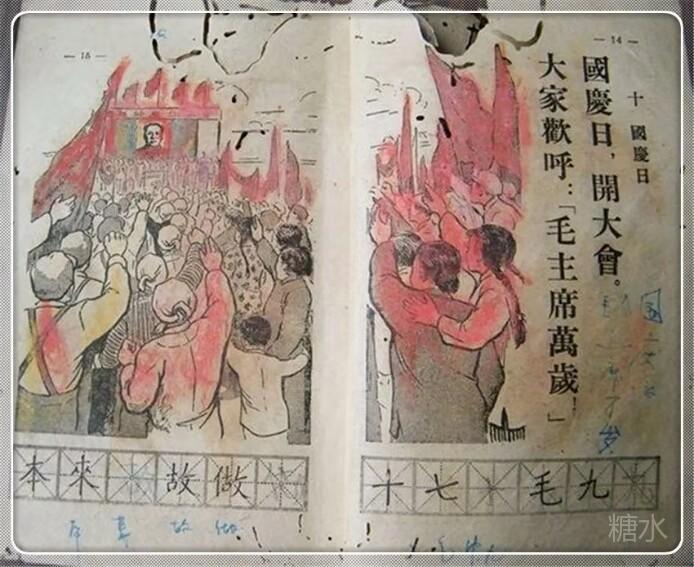 — 14 —
十 國慶日
國慶日，開大會。
大家歡呼：「毛主席萬歲！」
十 七 毛 九
— 15 —
本 來 故 做
糖水